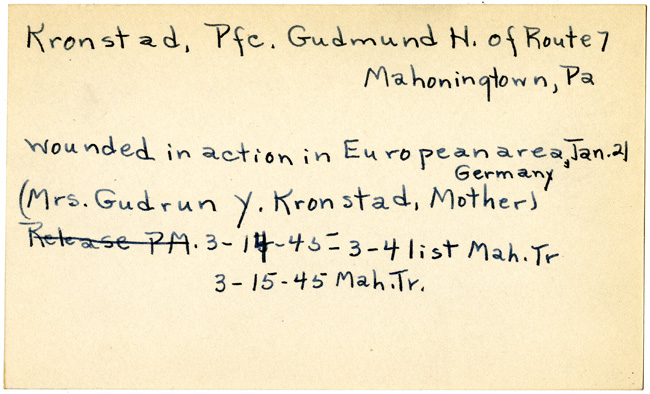 Kronstad, Pfc. Gudmund H. of Route 7
Mahoningtown, Pa
wounded in action in European area, Jan. 21
Germany
(Mrs. Gudrun Y. Kronstad, Mother)
Release PM. 3-14-45 = 3-4 list Mah. Tr
3-15-45 Mah. Tr.